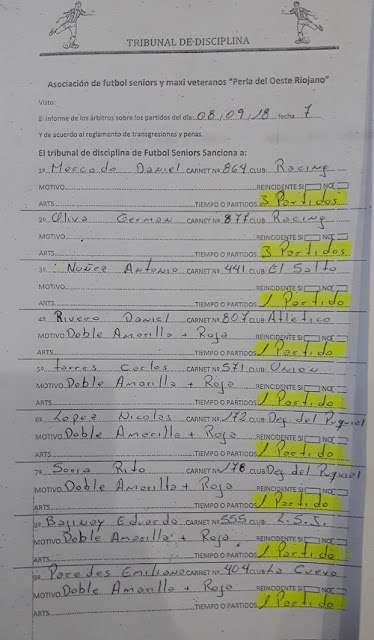 TRIBUNAL DE DISCIPLINA
Asociación de futbol seniors y maxi veteranos "Perla del Oeste Riojano"
Visto:
El informe de los árbitros sobre los partidos del día: 08/09/18 fecha 7
Y de acuerdo al reglamento de transgresiones y penas.
El tribunal de disciplina de Futbol Seniors Sanciona a:
1º Mercado Daniel CARNET Nº 864 CLUB: Racing
MOTIVO REINCIDENTE SI NO
ARTS. TIEMPO O PARTIDOS 3 Partidos
2º Oliva German CARNET Nº 877 CLUB: Racing
MOTIVO REINCIDENTE SI NO
ARTS. TIEMPO O PARTIDOS 3 Partidos
3º Nuñez Antonio CARNET Nº 441 CLUB El Salto
MOTIVO REINCIDENTE SI NO
ARTS. TIEMPO O PARTIDOS 1 Partido
4º Rivero Daniel CARNET Nº 807 CLUB: Atletico
MOTIVO: Doble Amarilla + Roja REINCIDENTE SI NO
ARTS. TIEMPO O PARTIDOS 1 Partido
5º Torres Carlos CARNET Nº 571 CLUB: Union
MOTIVO Doble Amarilla + Roja REINCIDENTE SI NO
ARTS. TIEMPO O PARTIDOS 1 Partido
6º Lopez Nicolas CARNET Nº 172 CLUB: Dep. del
MOTIVO Doble Amarilla + Roja REINCIDENTE SI NO
ARTS. TIEMPO O PARTIDOS 1 Partido
7º Soria Rito CARNET Nº 178 CLUB: Dep. del
MOTIVO Doble Amarilla + Roja REINCIDENTE SI NO
ARTS. TIEMPO O PARTIDOS 1 Partido
8º Eduardo CARNET Nº 555 CLUB: L.S.J.
MOTIVO: Doble Amarilla + Roja REINCIDENTE SI NO
ARTS. TIEMPO O PARTIDOS 1 Partido
9º Paredes Emiliano CARNET Nº 404 CLUB La Cueva
MOTIVO: Doble Amarilla + Roja REINCIDENTE SI NO
ARTS. TIEMPO O PARTIDOS 1 Partido